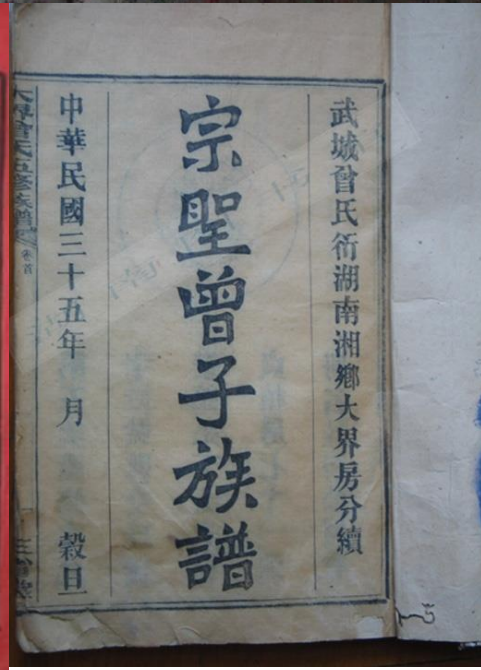 武城曾氏衍湖南湘鄉大界房分續
宗聖曾子族譜
中華民國三十五年 月 穀旦
大界曾氏五修族譜
卷首